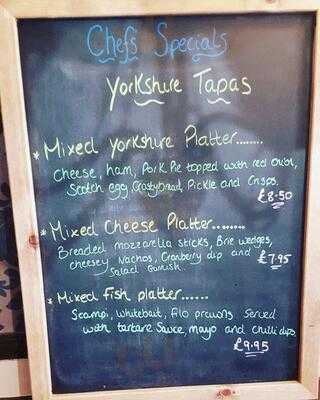 Chefs Specials
Yorkshire Tapas
* Mixed Yorkshire Platter........
Cheese, ham, Pork Pie topped with red Onion,
Scotch egg, Crusty bread, Pickle and Crisps.
£8.50
* Mixed Cheese Platter.........
Breaded mozzarella sticks, Brie wedges,
cheesey Nachos, Cranberry dip and
Salad Garnish £7.95
* Mixed fish platter......
Scampi, Whitebait, filo prawns Served
with tartare Sauce, mayo and chilli dips
£9.95